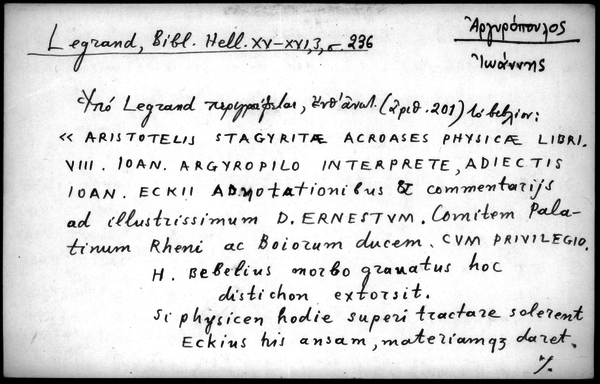 Legrand, Bibl. Hell. XV–XVI, 3, – 236
Ἀργυρόπουλος
Ἰωάννης
Ὑπό Legrand περιγράφεται, (ἀριθ. 201) τό βιβλίον:
« ARISTOTELIS STAGYRITÆ ACROASES PHYSICÆ LIBRI.
VIII. IOAN. ARGYROPILO INTERPRETE, ADIECTIS
IOAN. ECKII ADNOTATIONIBUS & commentarijs
ad illustrissimum D. ERNESTVM. Comitem Pala-
tinum Rheni ac Boiorum ducem. CVM PRIVILEGIO.
H. Bebelius morbo grauatus hoc
distichon extorsit.
Si physicen hodie superi tractare solerent
Eckius his ansam, materiamqȝ daret.
./.